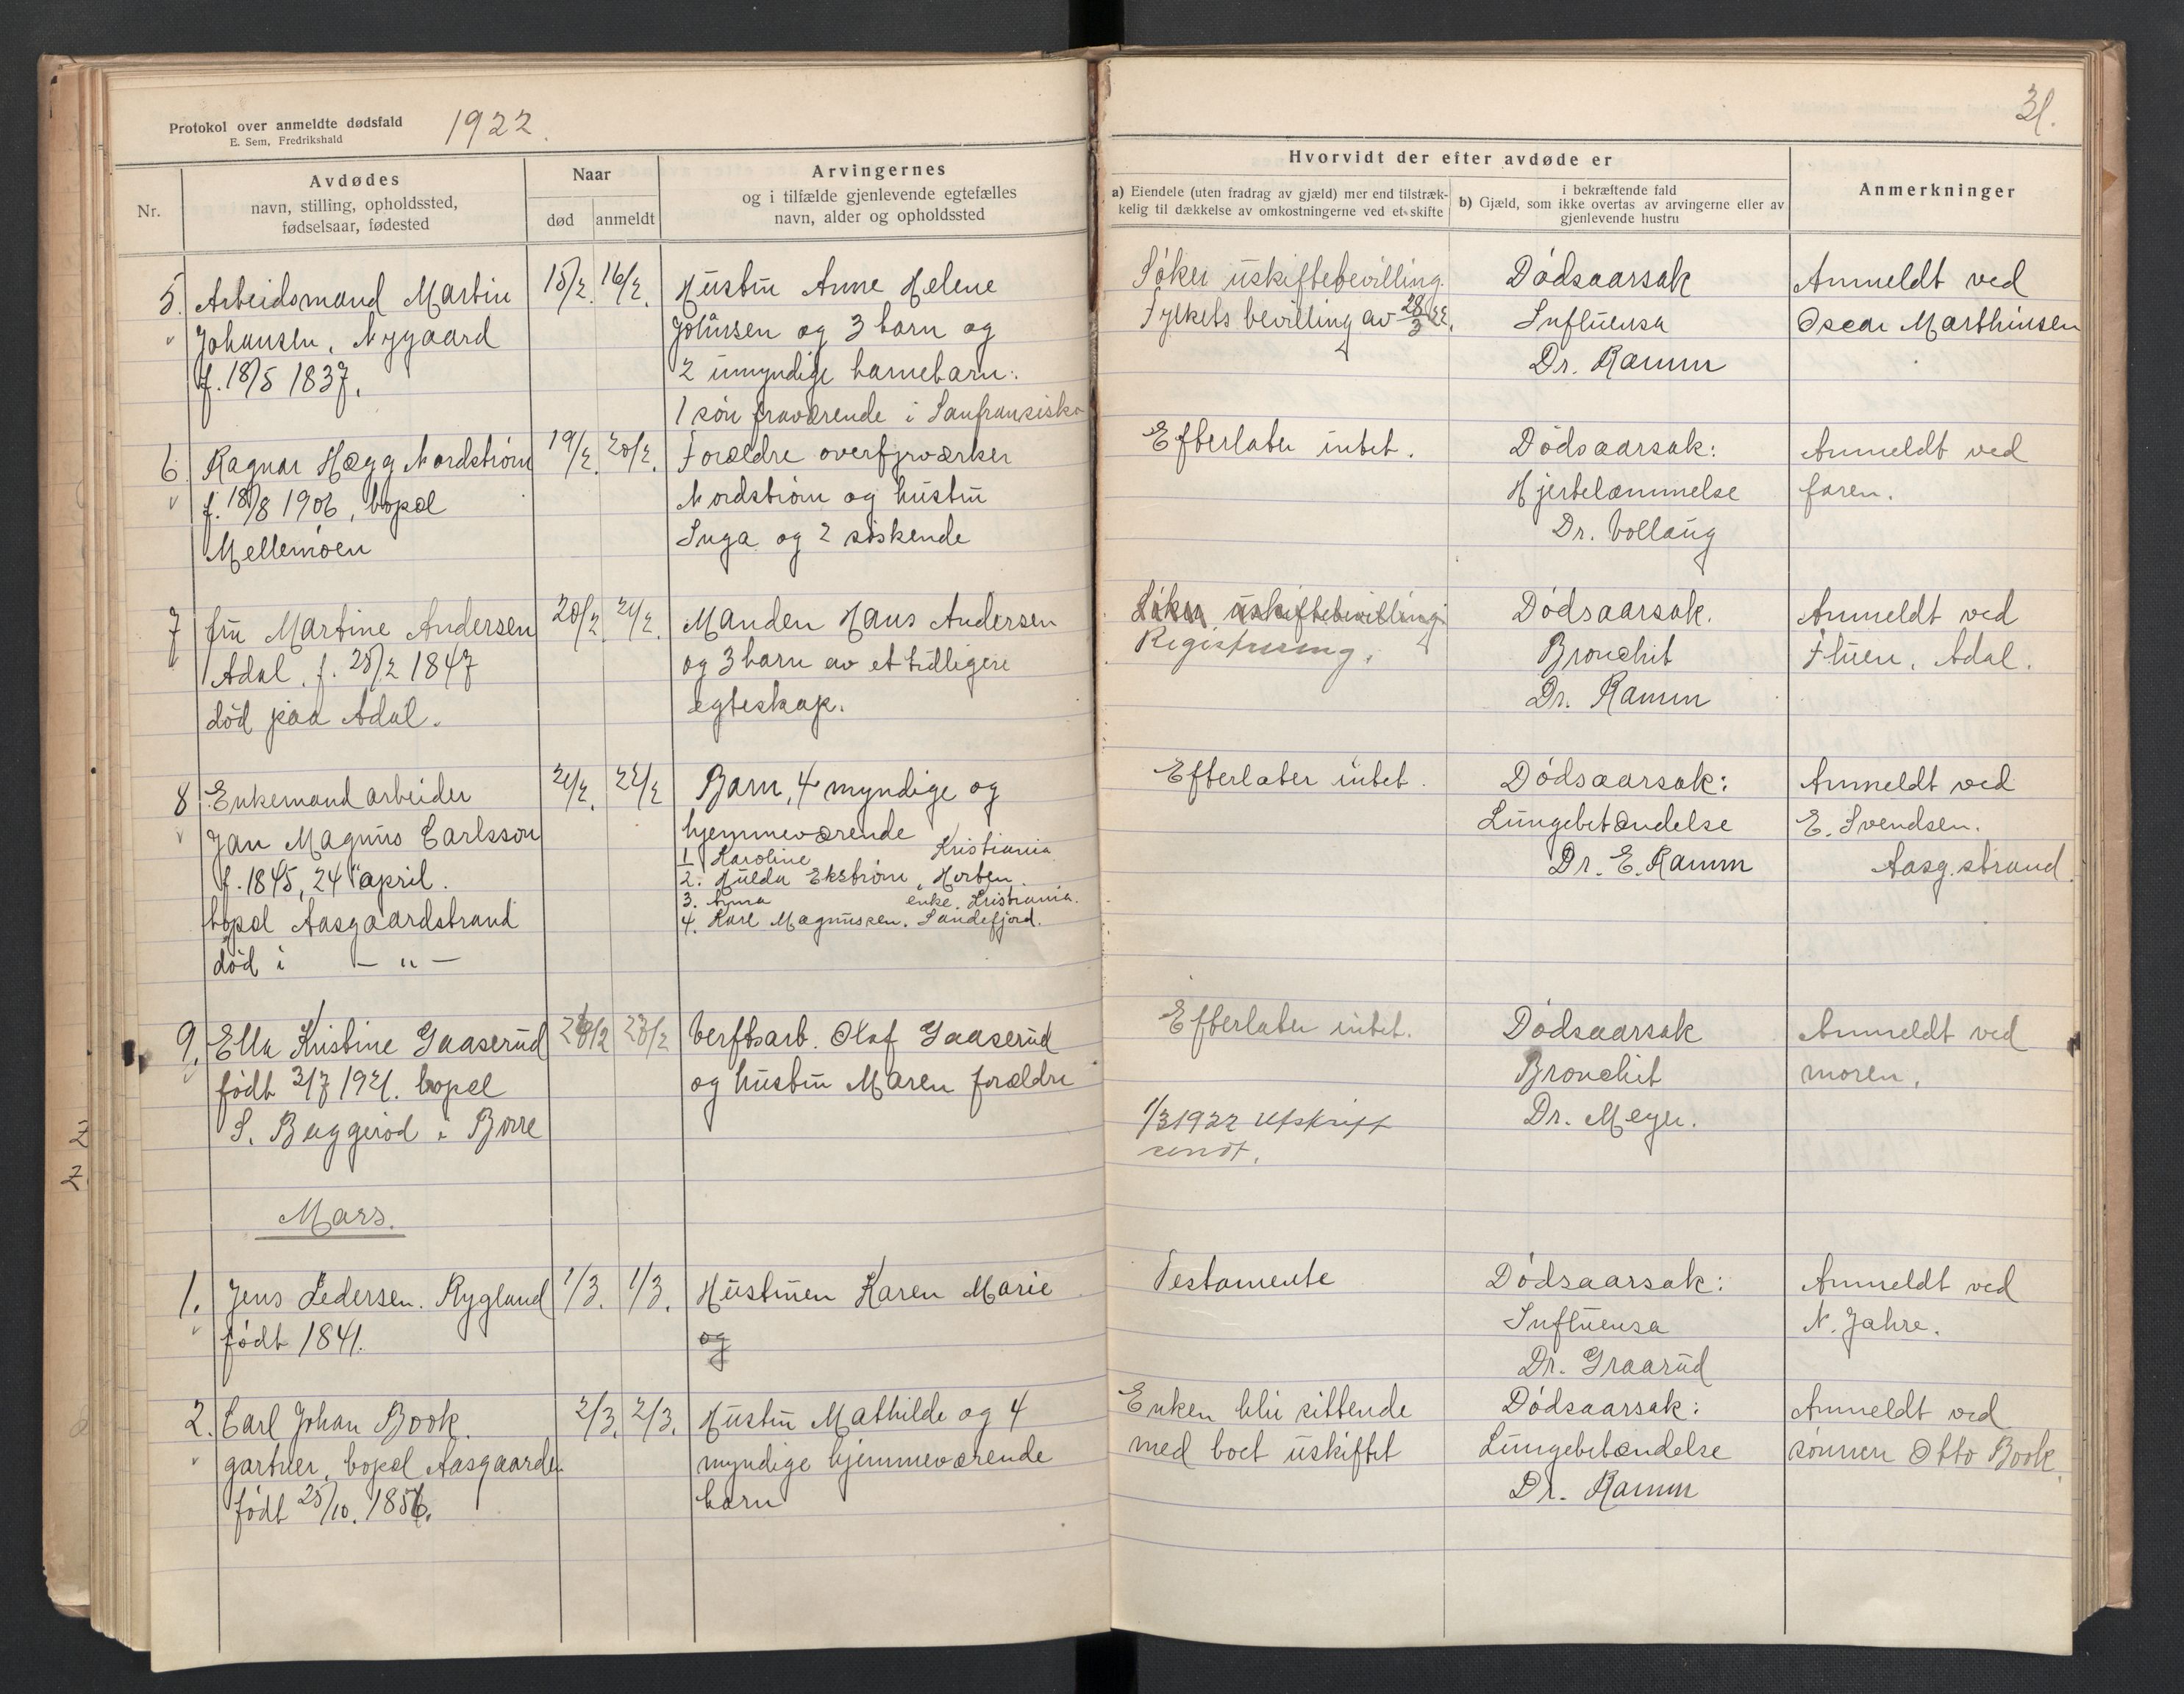 Protokol over anmeldte dødsfald
E. Sem, Fredrikshald
1922.
Nr.
Avdødes
navn, stilling, opholdssted,
fødselsaar, fødested
Naar
død
anmeldt
Arvingernes
og i tilfælde gjenlevende egtefælles
navn, alder og opholdssted
5.
Arbeidsmand Martin
Johansen, Nygaard
f. 18/5 1837.
15/2.
16/2.
Hustru Anne Helene
Johansen og 3 barn og
2 umyndige barnebarn:
1 søn fraværende i Sanfransisko
6.
Ragnar Hægg Nordstrøm
f. 18/8 1906, bopæl
Mellemøen
19/2.
20/2.
Forældre overfyrværker
Nordstrøm og hustru
Inga og 2 søskende
7
fru Martine Andersen
Adal, f. 25/2 1847
død paa Adal.
20/2.
21/2.
Manden Hans Andersen
og 3 barn av et tidligere
egteskap.
8
Enkemand arbeider
Jan Magnus Carlsson
f. 1845, 24 april.
bopæl Aasgaardstrand
død i — „ —
21/2.
22/2
Barn, 4 myndige og
hjemmeværende
1 Karoline Kristiania
2. Hulda Ekstrøm, Horten.
3. Anna enke, Kristiania.
4. Karl Magnussen. Sandefjord.
9.
Ella Kristine Gaaserud
født 3/7 1921. bopæl
S. Buggerød i Borre
23/2
Verftsarb. Olaf Gaaserud
og hustru Maren forældre
Mars.
1.
Jens Pedersen. Rygland
født 1841.
1/3.
1/3.
Hustruen Karen Marie
og
2.
Carl Johan Book.
gartner, bopæl Aasgaarden
født 25/10. 1856.
2/3.
2/3.
Hustru Mathilde og 4
myndige hjemmeværende
barn
31.
Hvorvidt der efter avdøde er
a) Eiendele (uten fradrag av gjæld) mer end tilstræk-
kelig til dækkelse av omkostningerne ved et skifte
i bekræftende fald
b) Gjæld, som ikke overtas av arvingerne eller av
gjenlevende hustru
Anmerkninger
Søker uskiftebevilling.
Fylkets bevilling av 28/3 22.
Dødsaarsak
Influensa
Dr. Ramm
Anmeldt ved
Oscar Marthinsen
Efterlater intet.
Dødsaarsak:
Hjertelammelse
Dr. Vollaug
Anmeldt ved
faren.
Søker uskiftebevilling
Registrering.
Dødsaarsak.
Bronchit
Dr. Ramm
Anmeldt ved
Thuen, Adal.
Efterlater intet.
Dødsaarsak:
Lungebetændelse
Dr. E. Ramm
Anmeldt ved
E. Svendsen.
Aasg.strand.
Efterlater intet.
1/3 1922 Utskrift
sendt.
Dødsaarsak
Bronchit
Dr. Meyer.
Anmeldt ved
moren.
Testamente
Dødsaarsak:
Influensa
Dr. Graarud
Anmeldt ved
N. Jahre.
Enken blir sittende
med boet uskiftet
Dødsaarsak:
Lungebetændelse
Dr. Ramm
Anmeldt ved
sønnen Otto Book.